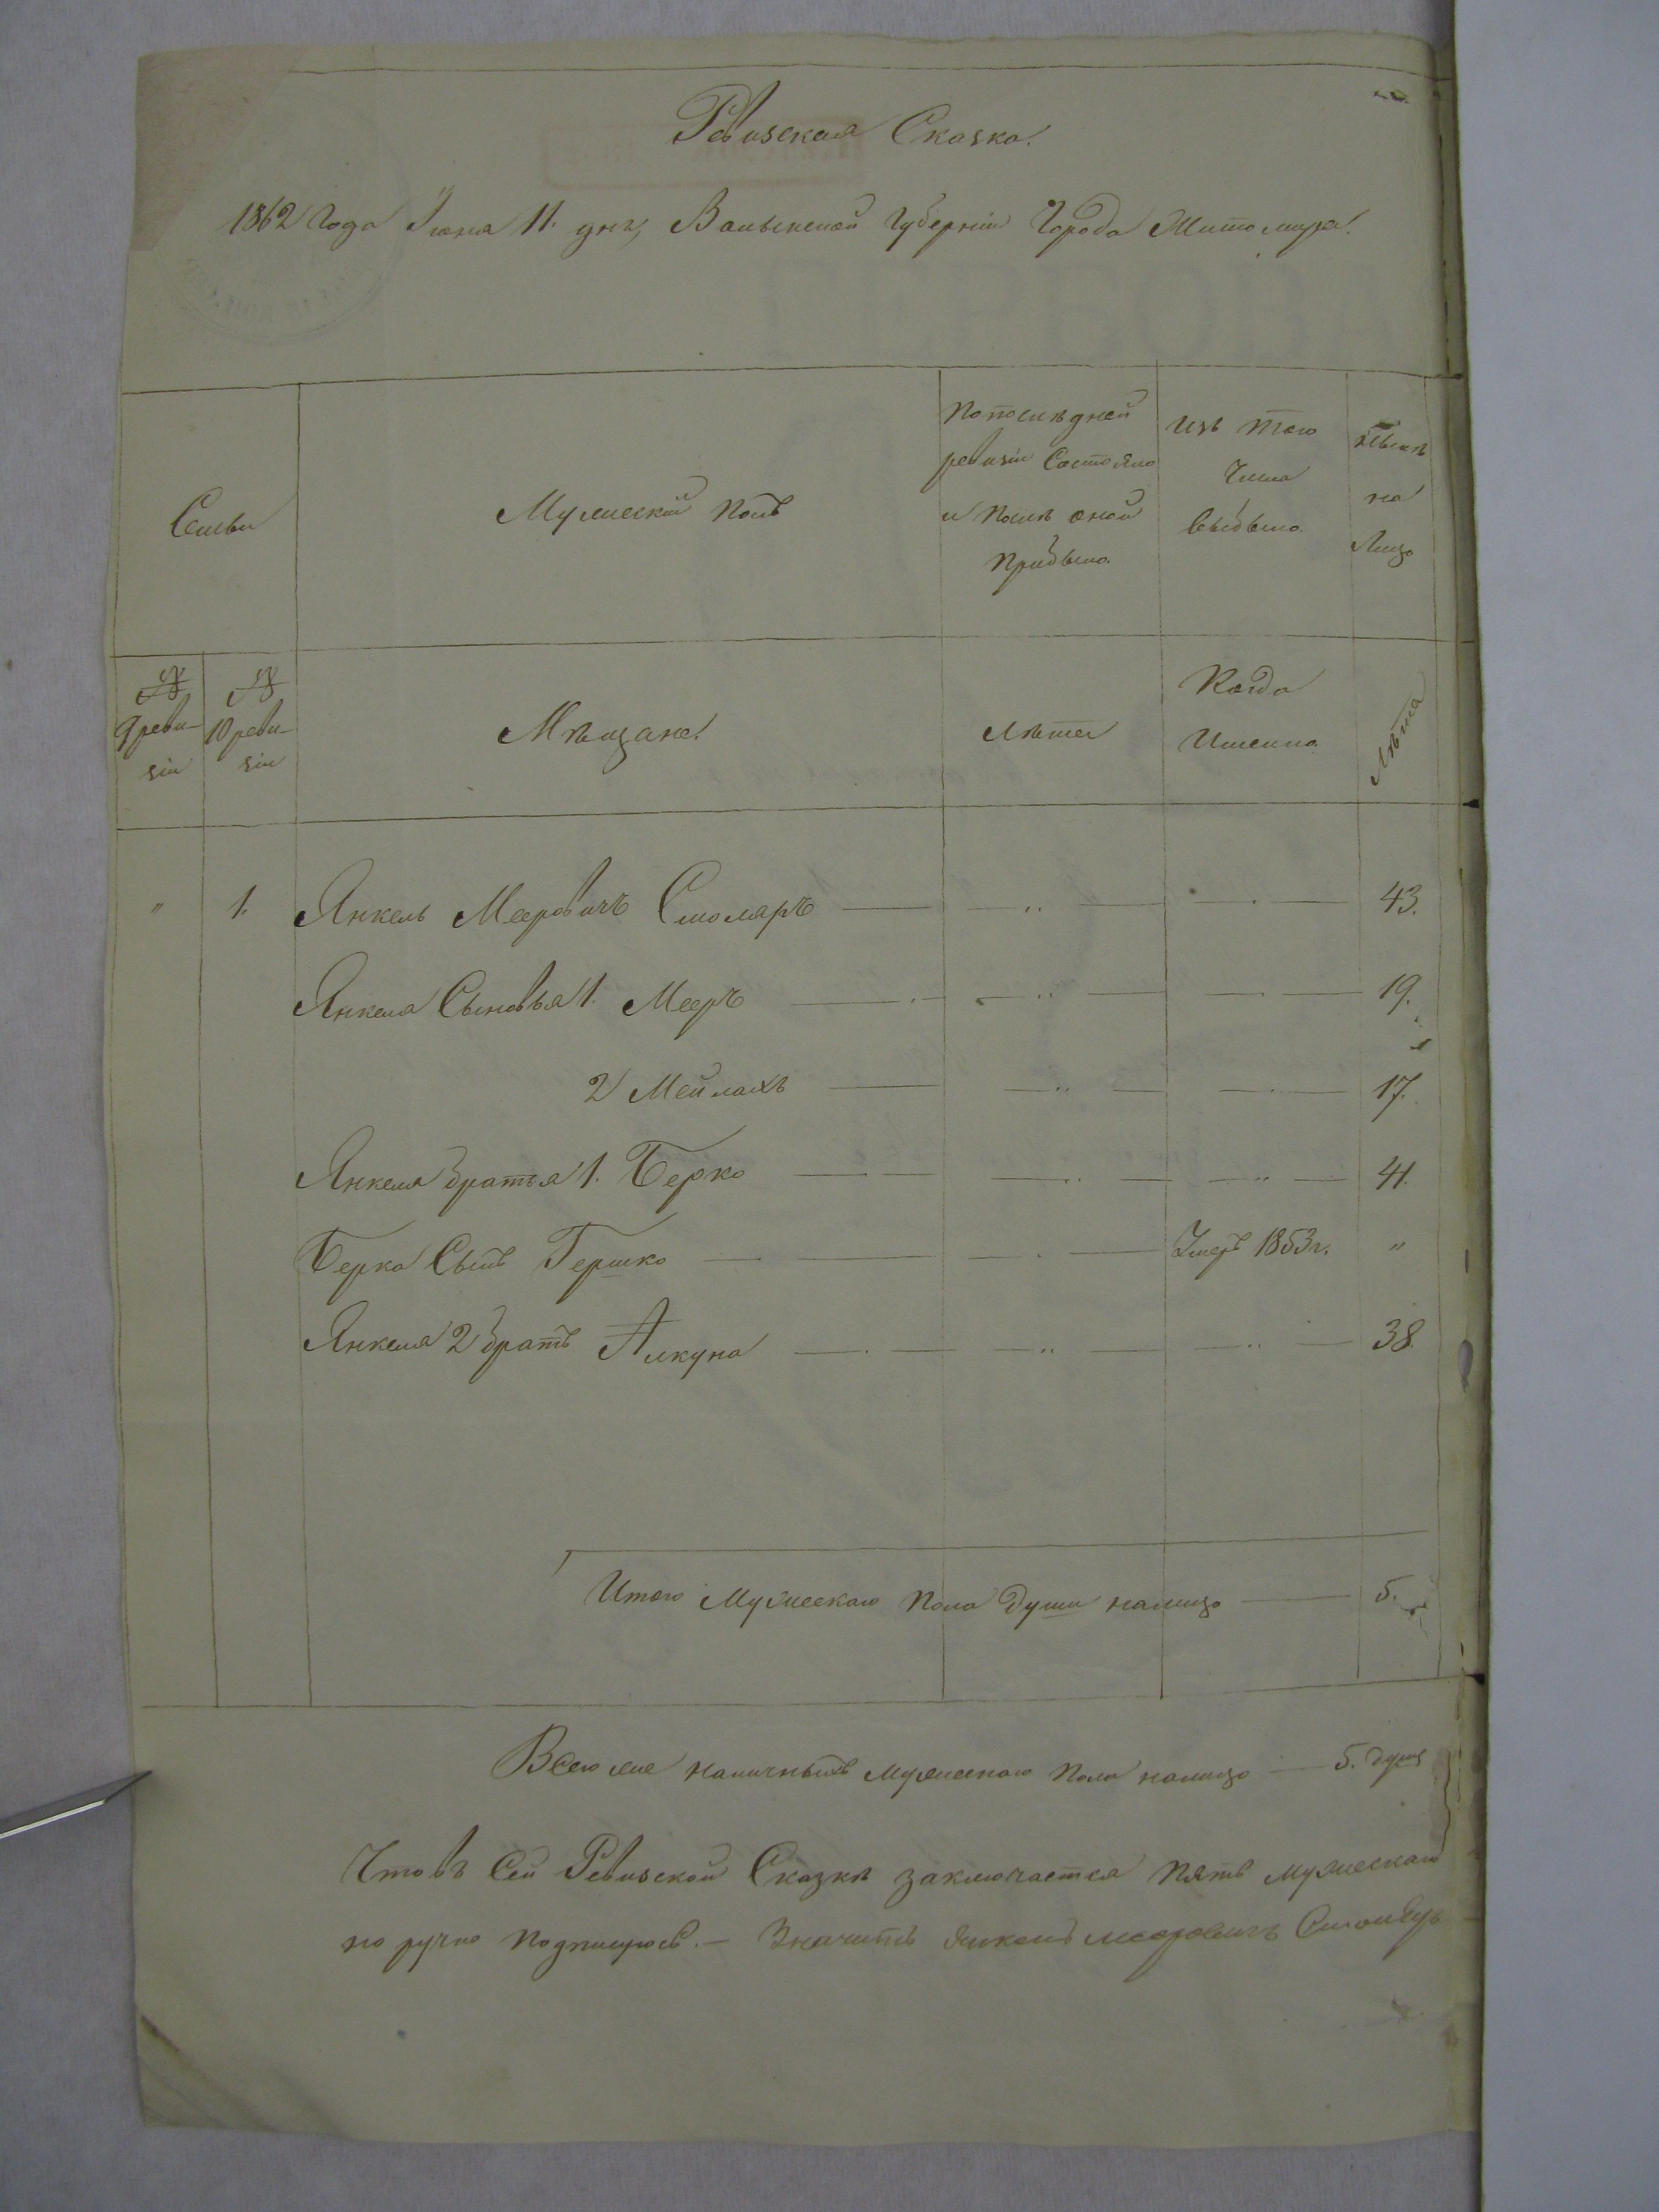 Ревизская Сказка.
1862 Года Іюня 11. дня, Волынской Губерніи Города Житомира.
Семьи
Мужескій полъ
По послѣдней
ревизіи Состояло
и послѣ оной
прибыло.
Изъ того
Числа
выбыло.
нынѣ
на
Лицо
№
9 реви-
зіи
№
10 реви-
зіи
Мѣщане.
Лѣта
Когда
Именно.
Лѣта
" 1. Янкель Мееровичъ Столяръ — " — — . — 43.
Янкеля Сыновья 1. Мееръ — " — — . — 19.
2 Мейлахъ — " — — . — 17.
Янкеля братья 1. Берко — " — — " — 41.
Берка Сынъ Гершко — . — Умеръ 1853 г. "
Янкеля 2 братъ Алкуна — " — — " — 38.
Итого Мужескаго Пола души налицо — 5.
Всего же наличныхъ мужескаго пола налицо — 5. душъ
Что въ Сей Ревизской Сказкѣ заключается пять мужескаго
но ручно подписуюсь. — Значитъ Янкель Мееровичъ Столяръ